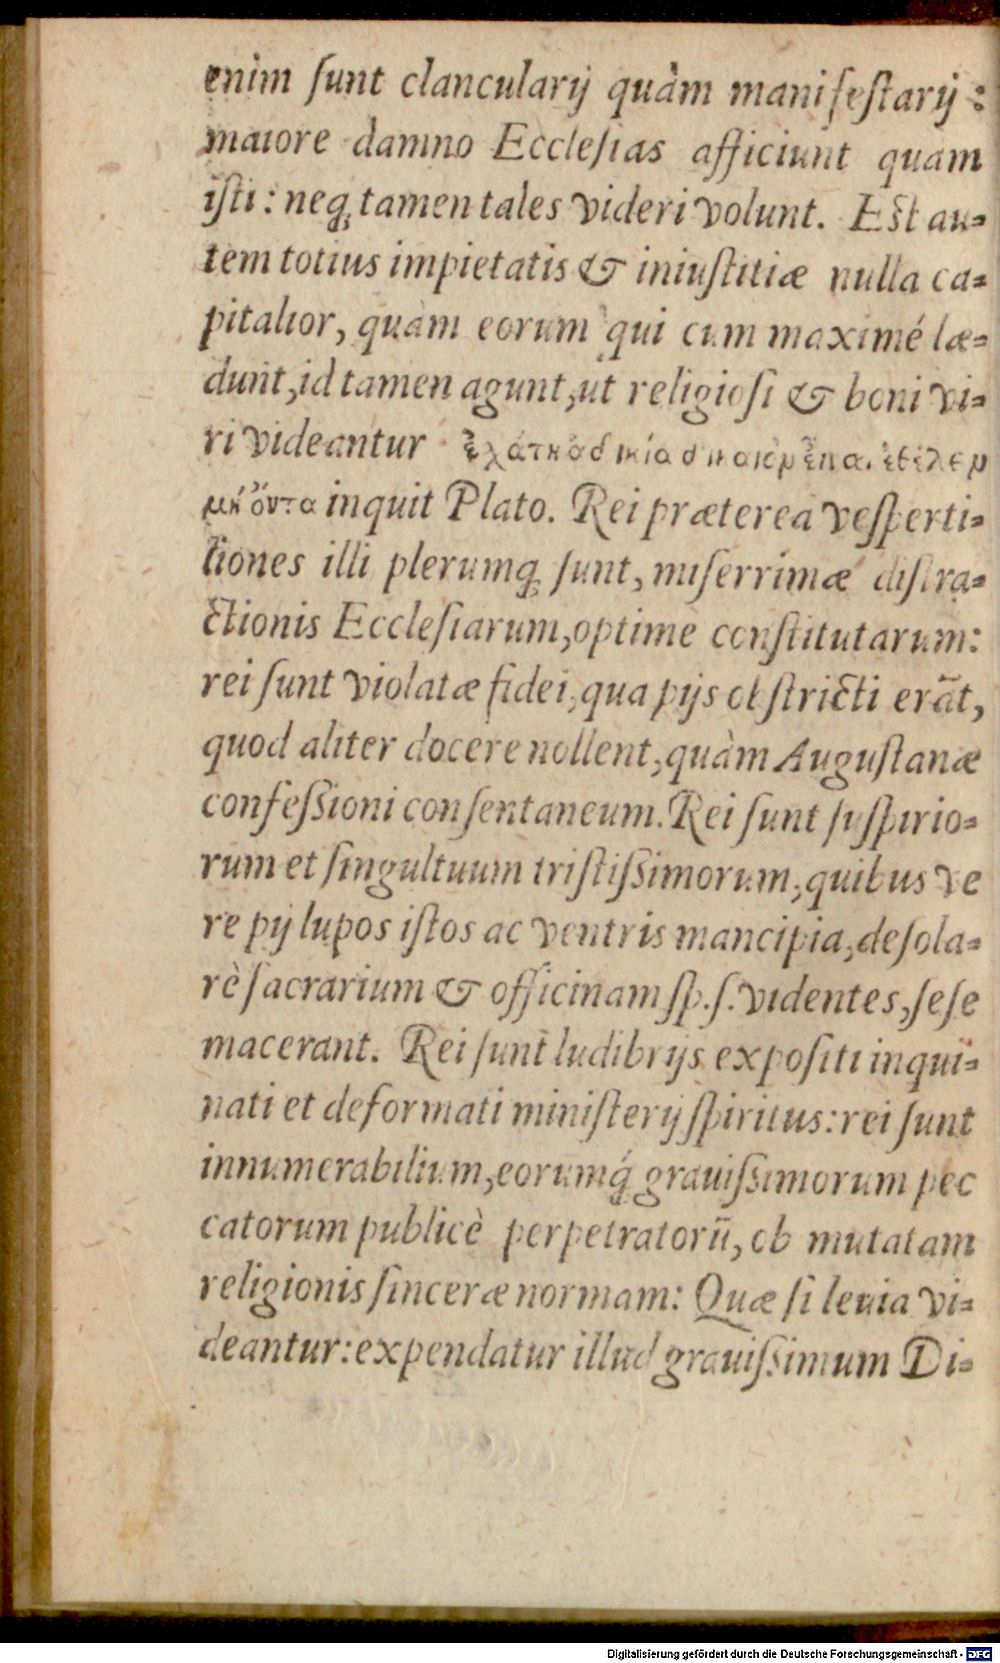 enim sunt clancularij quàm manifestarij :
maiore damno Ecclesias afficiunt quam
isti: neq; tamen tales videri volunt. Est au=
tem totius impietatis & iniustitiæ nulla ca=
pitalior, quàm eorum qui cum maximé læ=
dunt, id tamen agunt, ut religiosi & boni vi=
ri videantur
μὴ ὄντα inquit Plato. Rei præterea vesperti=
liones illi plerumq; sunt, miserrimæ distra=
ctionis Ecclesiarum, optime constitutarum:
rei sunt violatæ fidei, qua pijs obstricti erāt,
quod aliter docere nollent, quàm Augustanæ
confessioni consentaneum. Rei sunt suspirio=
rum et singultuum tristissimorum, quibus ve
re pij lupos istos ac ventris mancipia, desola=
rè sacrarium & officinam sp. s. videntes, sese
macerant. Rei sunt ludibrijs expositi inqui=
nati et deformati ministerij spiritus: rei sunt
innumerabilium, eorumq́; grauissimorum pec
catorum publicè perpetratorū, ob mutatam
religionis sinceræ normam: Quæ si leuia vi=
deantur: expendatur illud grauissimum Di=
Digitalisierung gefördert durch die Deutsche Forschungsgemeinschaft - DFG